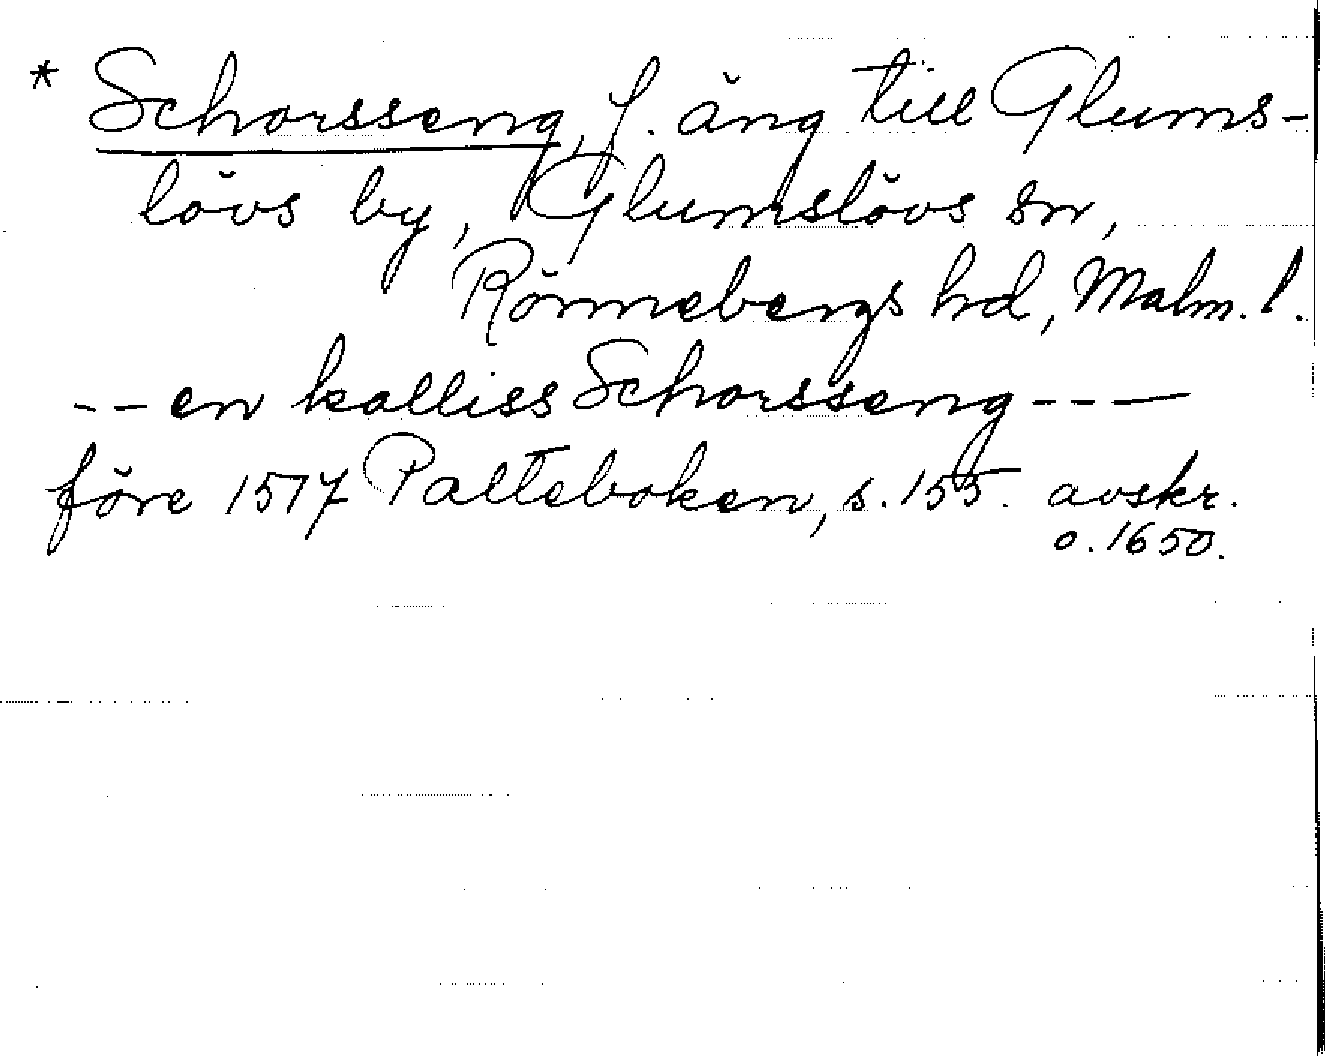 * Schorsseng, f. äng till Glums-
lövs by, Glumslövs sn,
Rönnebergs hd, Malm. l.
-- en kalliss Schorsseng ---
före 1517 Palteboken, s. 155. avskr.
o. 1650.